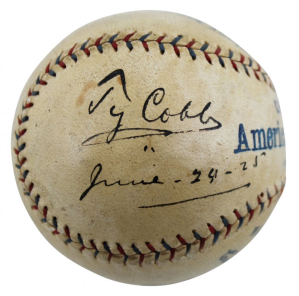 Ty Cobb
June - 24 - 25
Ameri